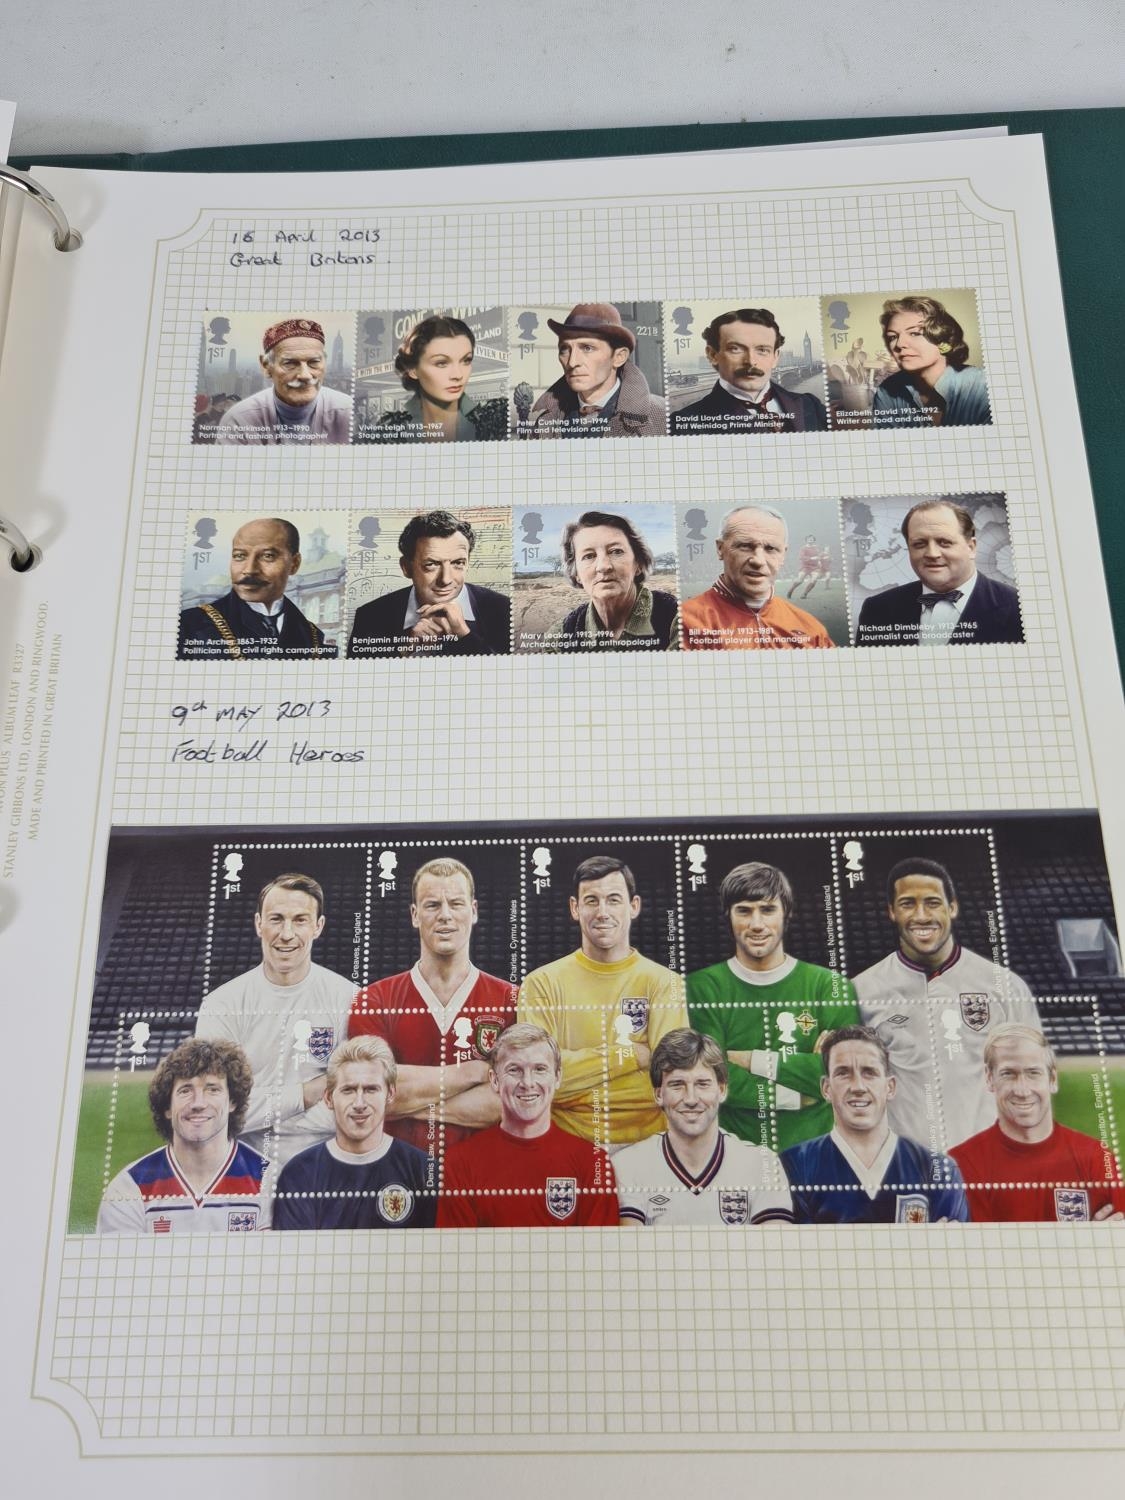 16 April 2013
Great Britons.
1ST
Norman Parkinson 1913–1990
Portrait and fashion photographer
1ST
GONE
WITH THE
VIVIEN LE
Vivien Leigh 1913–1967
Stage and film actress
1ST
221B
Peter Cushing 1913–1994
Film and television actor
1ST
David Lloyd George 1863–1945
Prif Weinidog Prime Minister
1ST
Elizabeth David 1913–1992
Writer on food and drink
1ST
John Archer 1863–1932
Politician and civil rights campaigner
1ST
Benjamin Britten 1913–1976
Composer and pianist
1ST
Mary Leakey 1913–1996
Archaeologist and anthropologist
1ST
Bill Shankly 1913–1981
Football player and manager
1ST
Richard Dimbleby 1913–1965
Journalist and broadcaster
9th MAY 2013
Football Heroes
1st
Jimmy Greaves, England
1st
John Charles, Cymru Wales
1st
Gordon Banks, England
1st
George Best, Northern Ireland
1st
John Barnes, England
1st
Kevin Keegan, England
1st
Denis Law, Scotland
1st
Bobby Moore, England
1st
Bryan Robson, England
1st
Dave Mackay, Scotland
1st
Bobby Charlton, England
PLUS ALBUM LEAF R3327
STANLEY GIBBONS LTD, LONDON AND RINGWOOD.
MADE AND PRINTED IN GREAT BRITAIN